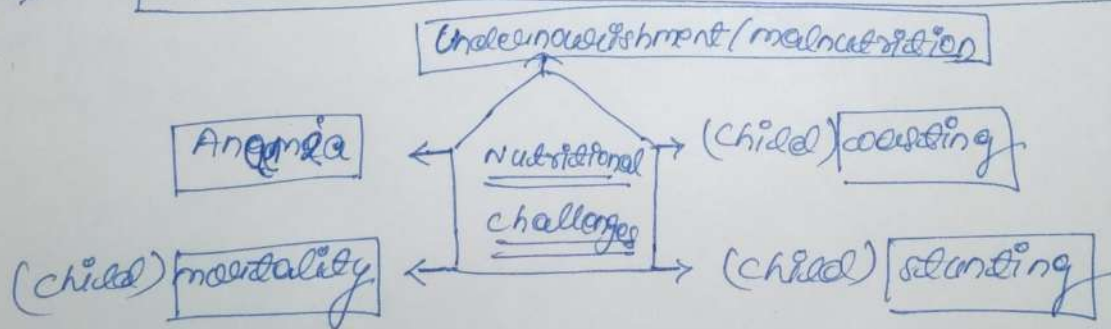 Undernourishment/malnutrition
Anaemia
Nutritional
(child) wasting
challenges
(child) mortality
(child) stunting